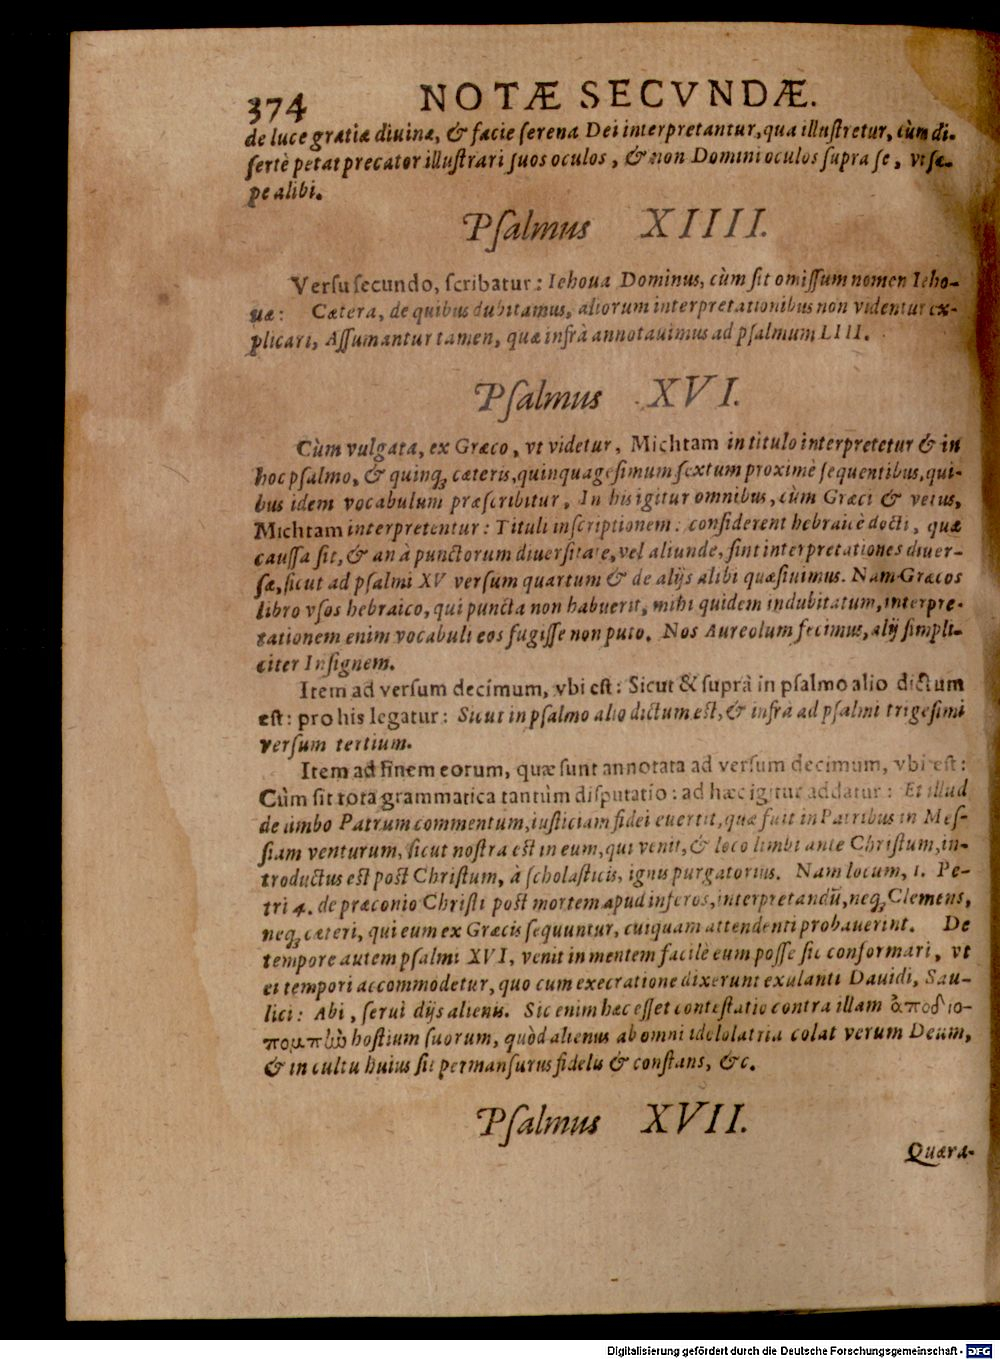 374 NOTÆ SECVNDÆ.
de luce gratiæ diuinæ, & facie ſerena Dei interpretantur, qua illuſtretur, cùm di-
ſertè petat precator illuſtrari ſuos oculos, & non Domini oculos ſupra ſe, vt ſæ-
pe alibi.
Pſalmus XIIII.
Verſu ſecundo, ſcribatur: Iehoua Dominus, cùm ſit omiſſum nomen Ieho-
uæ: Cætera, de quibus dubitamus, aliorum interpretationibus non videntur ex-
plicari, Aſſumantur tamen, quæ infrà annotauimus ad pſalmum LIII.
Pſalmus XVI.
Cùm vulgata, ex Græco, vt videtur, Michtam in titulo interpretetur & in
hoc pſalmo, & quinq; cæteris, quinquageſimum ſextum proximè ſequentibus, qui-
bus idem vocabulum præſcribitur, In his igitur omnibus, cùm Græci & vetus,
Michtam interpretentur: Tituli inſcriptionem: conſiderent hebraicè docti, quæ
cauſſa ſit, & an à punctorum diuerſitate, vel aliunde, ſint interpretationes diuer-
ſæ, ſicut ad pſalmi XV verſum quartum & de alijs alibi quæſiuimus. Nam Græcos
libro vſos hebraico, qui puncta non habuerit, mihi quidem indubitatum, interpre-
tationem enim vocabuli eos fugiſſe non puto. Nos Aureolum fecimus, alij ſimpli-
citer Inſignem.
Item ad verſum decimum, vbi eſt: Sicut & ſuprà in pſalmo alio dictum
eſt: pro his legatur: Sicut in pſalmo alio dictum eſt, & infrà ad pſalmi trigeſimi
verſum tertium.
Item ad finem eorum, quæ ſunt annotata ad verſum decimum, vbi eſt:
Cùm ſit tota grammatica tantùm diſputatio: ad hæc igitur addatur: Et illud
de limbo Patrum commentum, iuſticiam fidei euertit, quæ fuit in Patribus in Meſ-
ſiam venturum, ſicut noſtra eſt in eum, qui venit, & loco limbi ante Chriſtum, in-
troductus eſt poſt Chriſtum, à ſcholaſticis, ignis purgatorius. Nam locum, 1. Pe-
tri 4. de præconio Chriſti poſt mortem apud inferos, interpretandũ, neq; Clemens,
neq; cæteri, qui eum ex Græcis ſequuntur, cuiquam attendenti probauerint. De
tempore autem pſalmi XVI, venit in mentem facilè eum poſſe ſic conformari, vt
ei tempori accommodetur, quo cum execratione dixerunt exulanti Dauidi, Sau-
lici: Abi, ſerui dijs alienis. Sic enim hæc eſſet conteſtatio contra illam ἀποδιο-
πομπὴν hoſtium ſuorum, quòd alienus ab omni idololatria colat verum Deum,
& in cultu huius ſit permanſurus fidelis & conſtans, &c.
Pſalmus XVII.
Quæra-
Digitalisierung gefördert durch die Deutsche Forschungsgemeinschaft - DFG